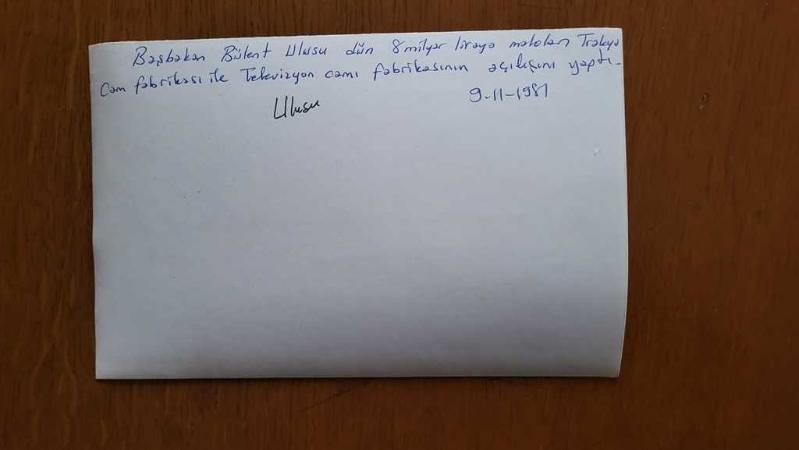 Başbakan Bülent Ulusu dün 8 milyar liraya malolan Trakya
Cam fabrikası ile Televizyon camı fabrikasının açılışını yaptı.
Ulusu 9-11-1981